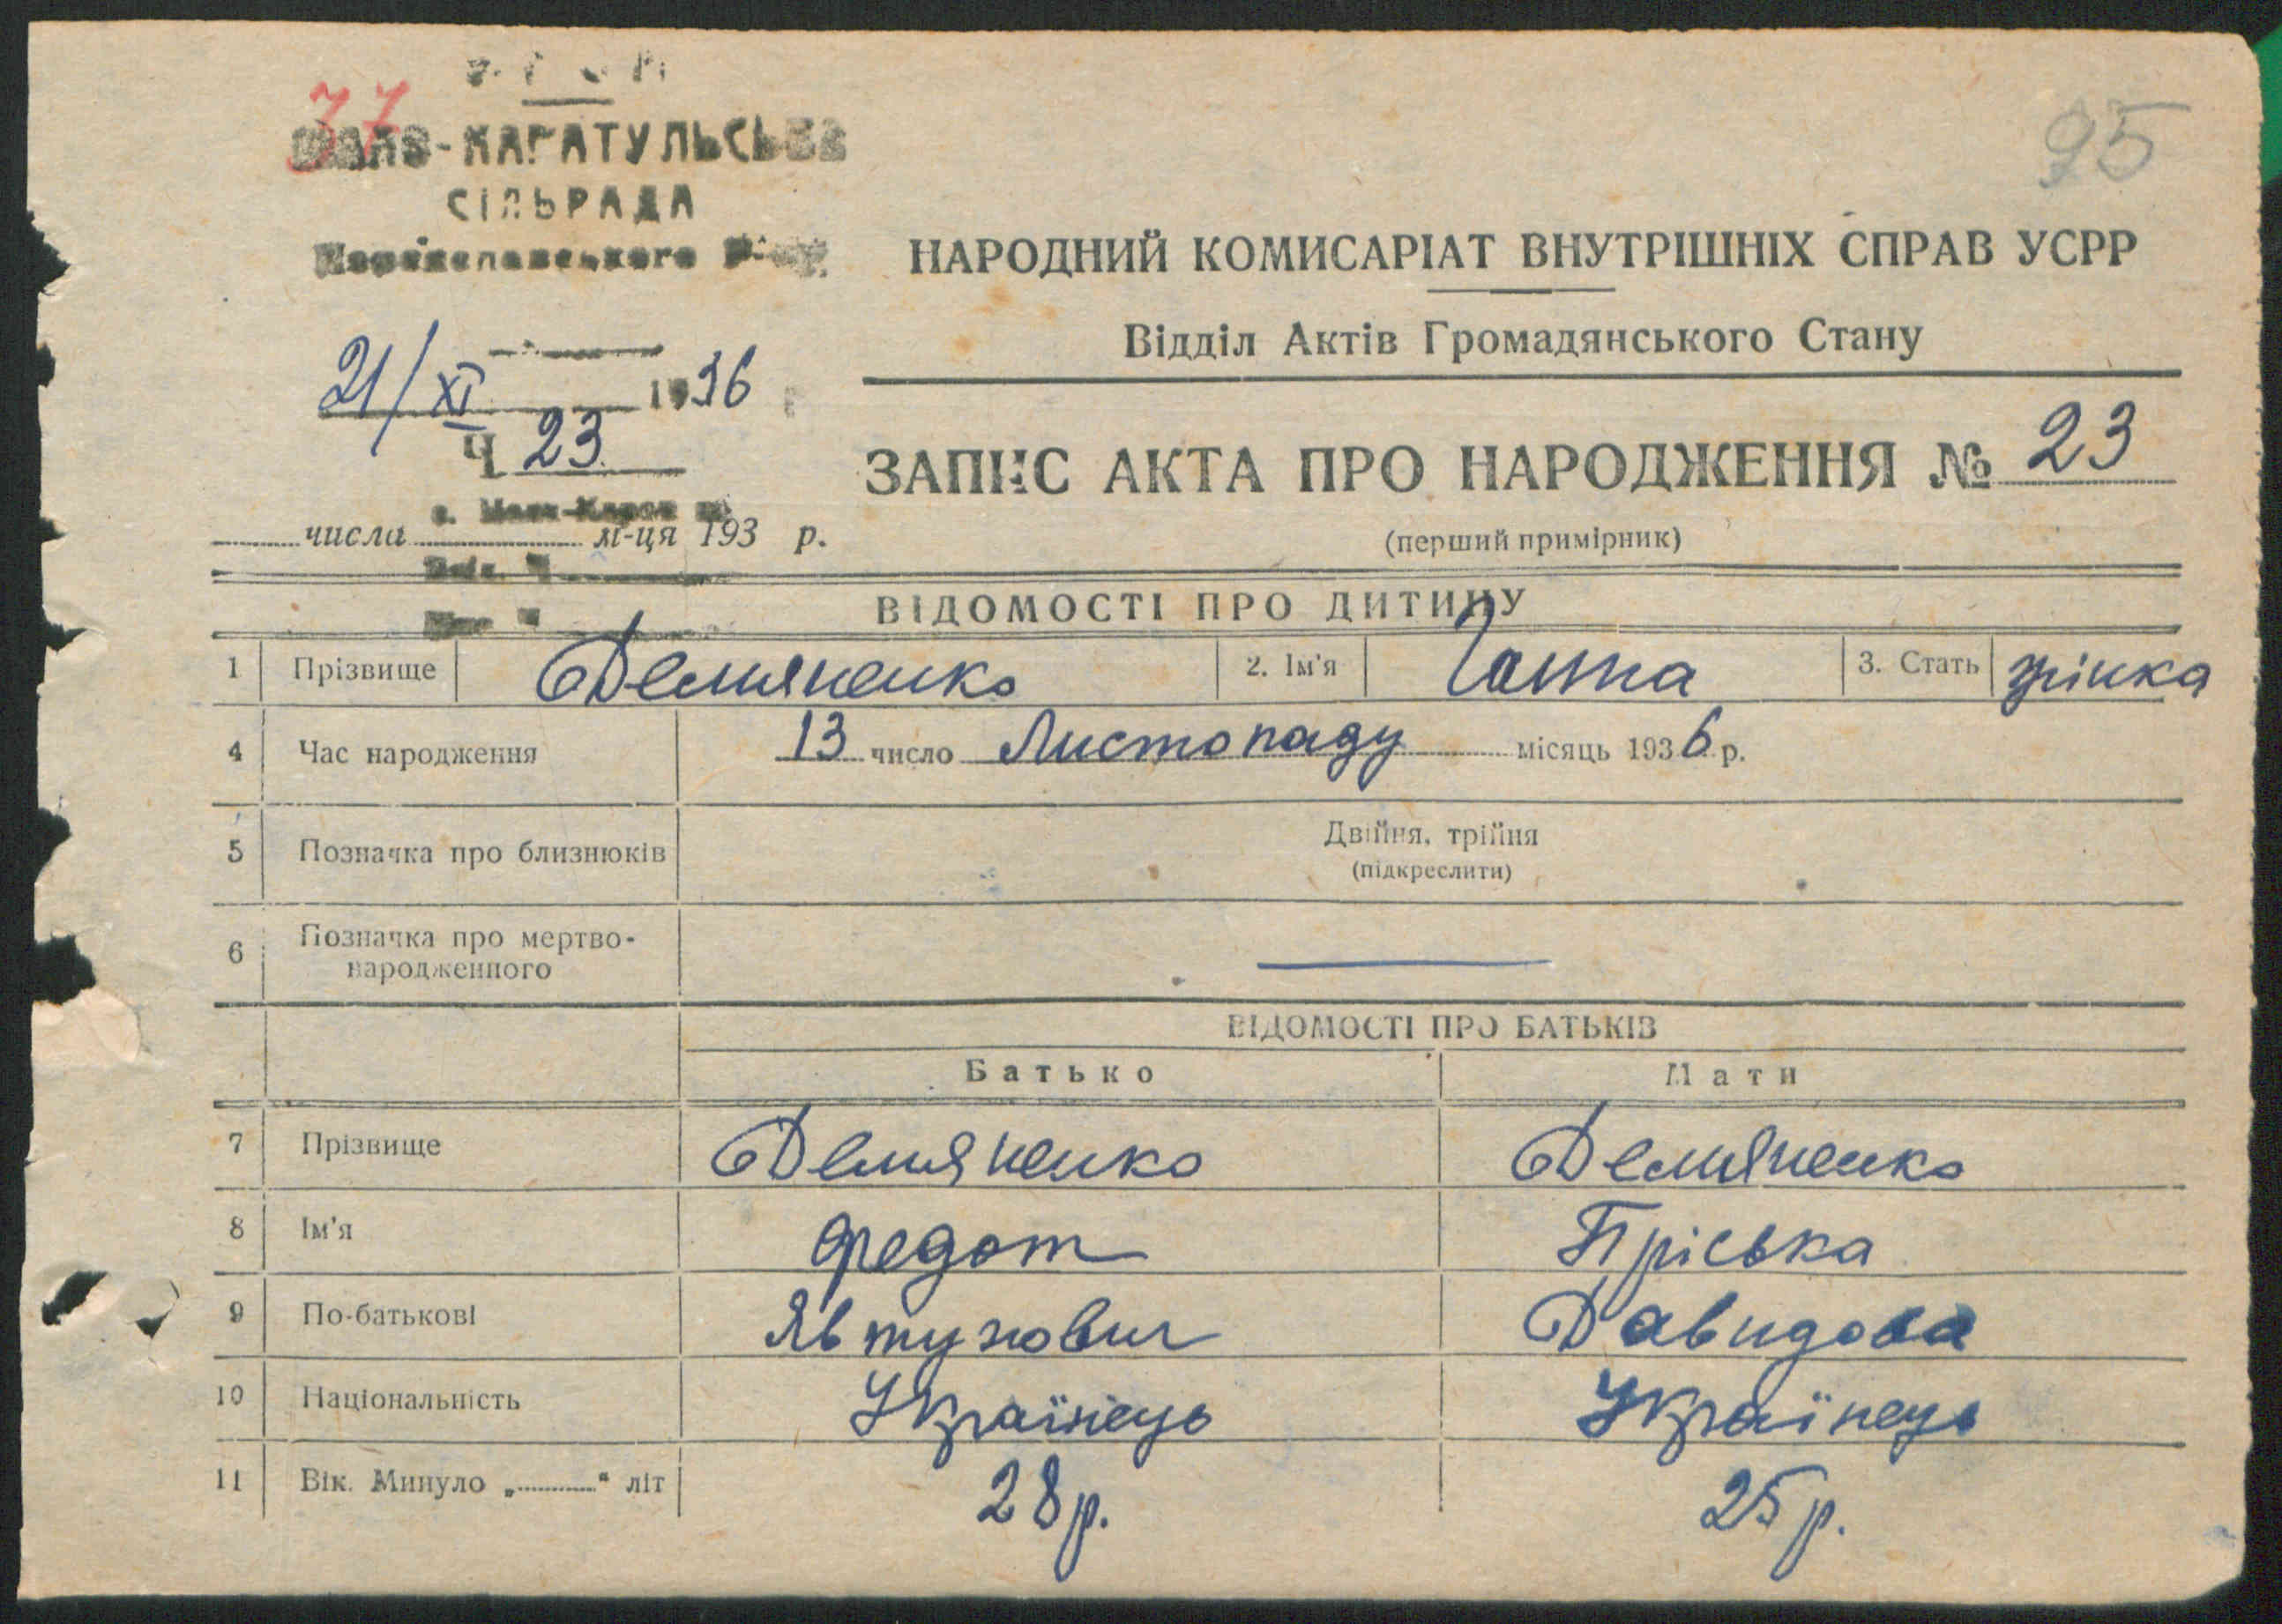 37
95
КАРАТУЛЬСЬКА
СІЛЬРАДА
НАРОДНИЙ КОМИСАРІАТ ВНУТРІШНІХ СПРАВ УСРР
Відділ Актів Громадянського Стану
21/XI 1936
Ч 23
ЗАПИС АКТА ПРО НАРОДЖЕННЯ № 23
(перший примірник)
числа м-ця 193 р.
ВІДОМОСТІ ПРО ДИТИНУ
1 Прізвище Демяненко 2. Ім'я Ганна 3. Стать жінка
4 Час народження 13 число Листопаду місяць 1936 р.
5 Позначка про близнюків Двійня, трійня
(підкреслити)
6 Позначка про мертво-
народженного
ВІДОМОСТІ ПРО БАТЬКІВ
Батько Мати
7 Прізвище Демяненко Демяненко
8 Ім'я Федот Пріська
9 По-батькові Явтухович Давидова
10 Національність Українець Українець
11 Вік. Минуло „ “ літ 28 р. 25 р.